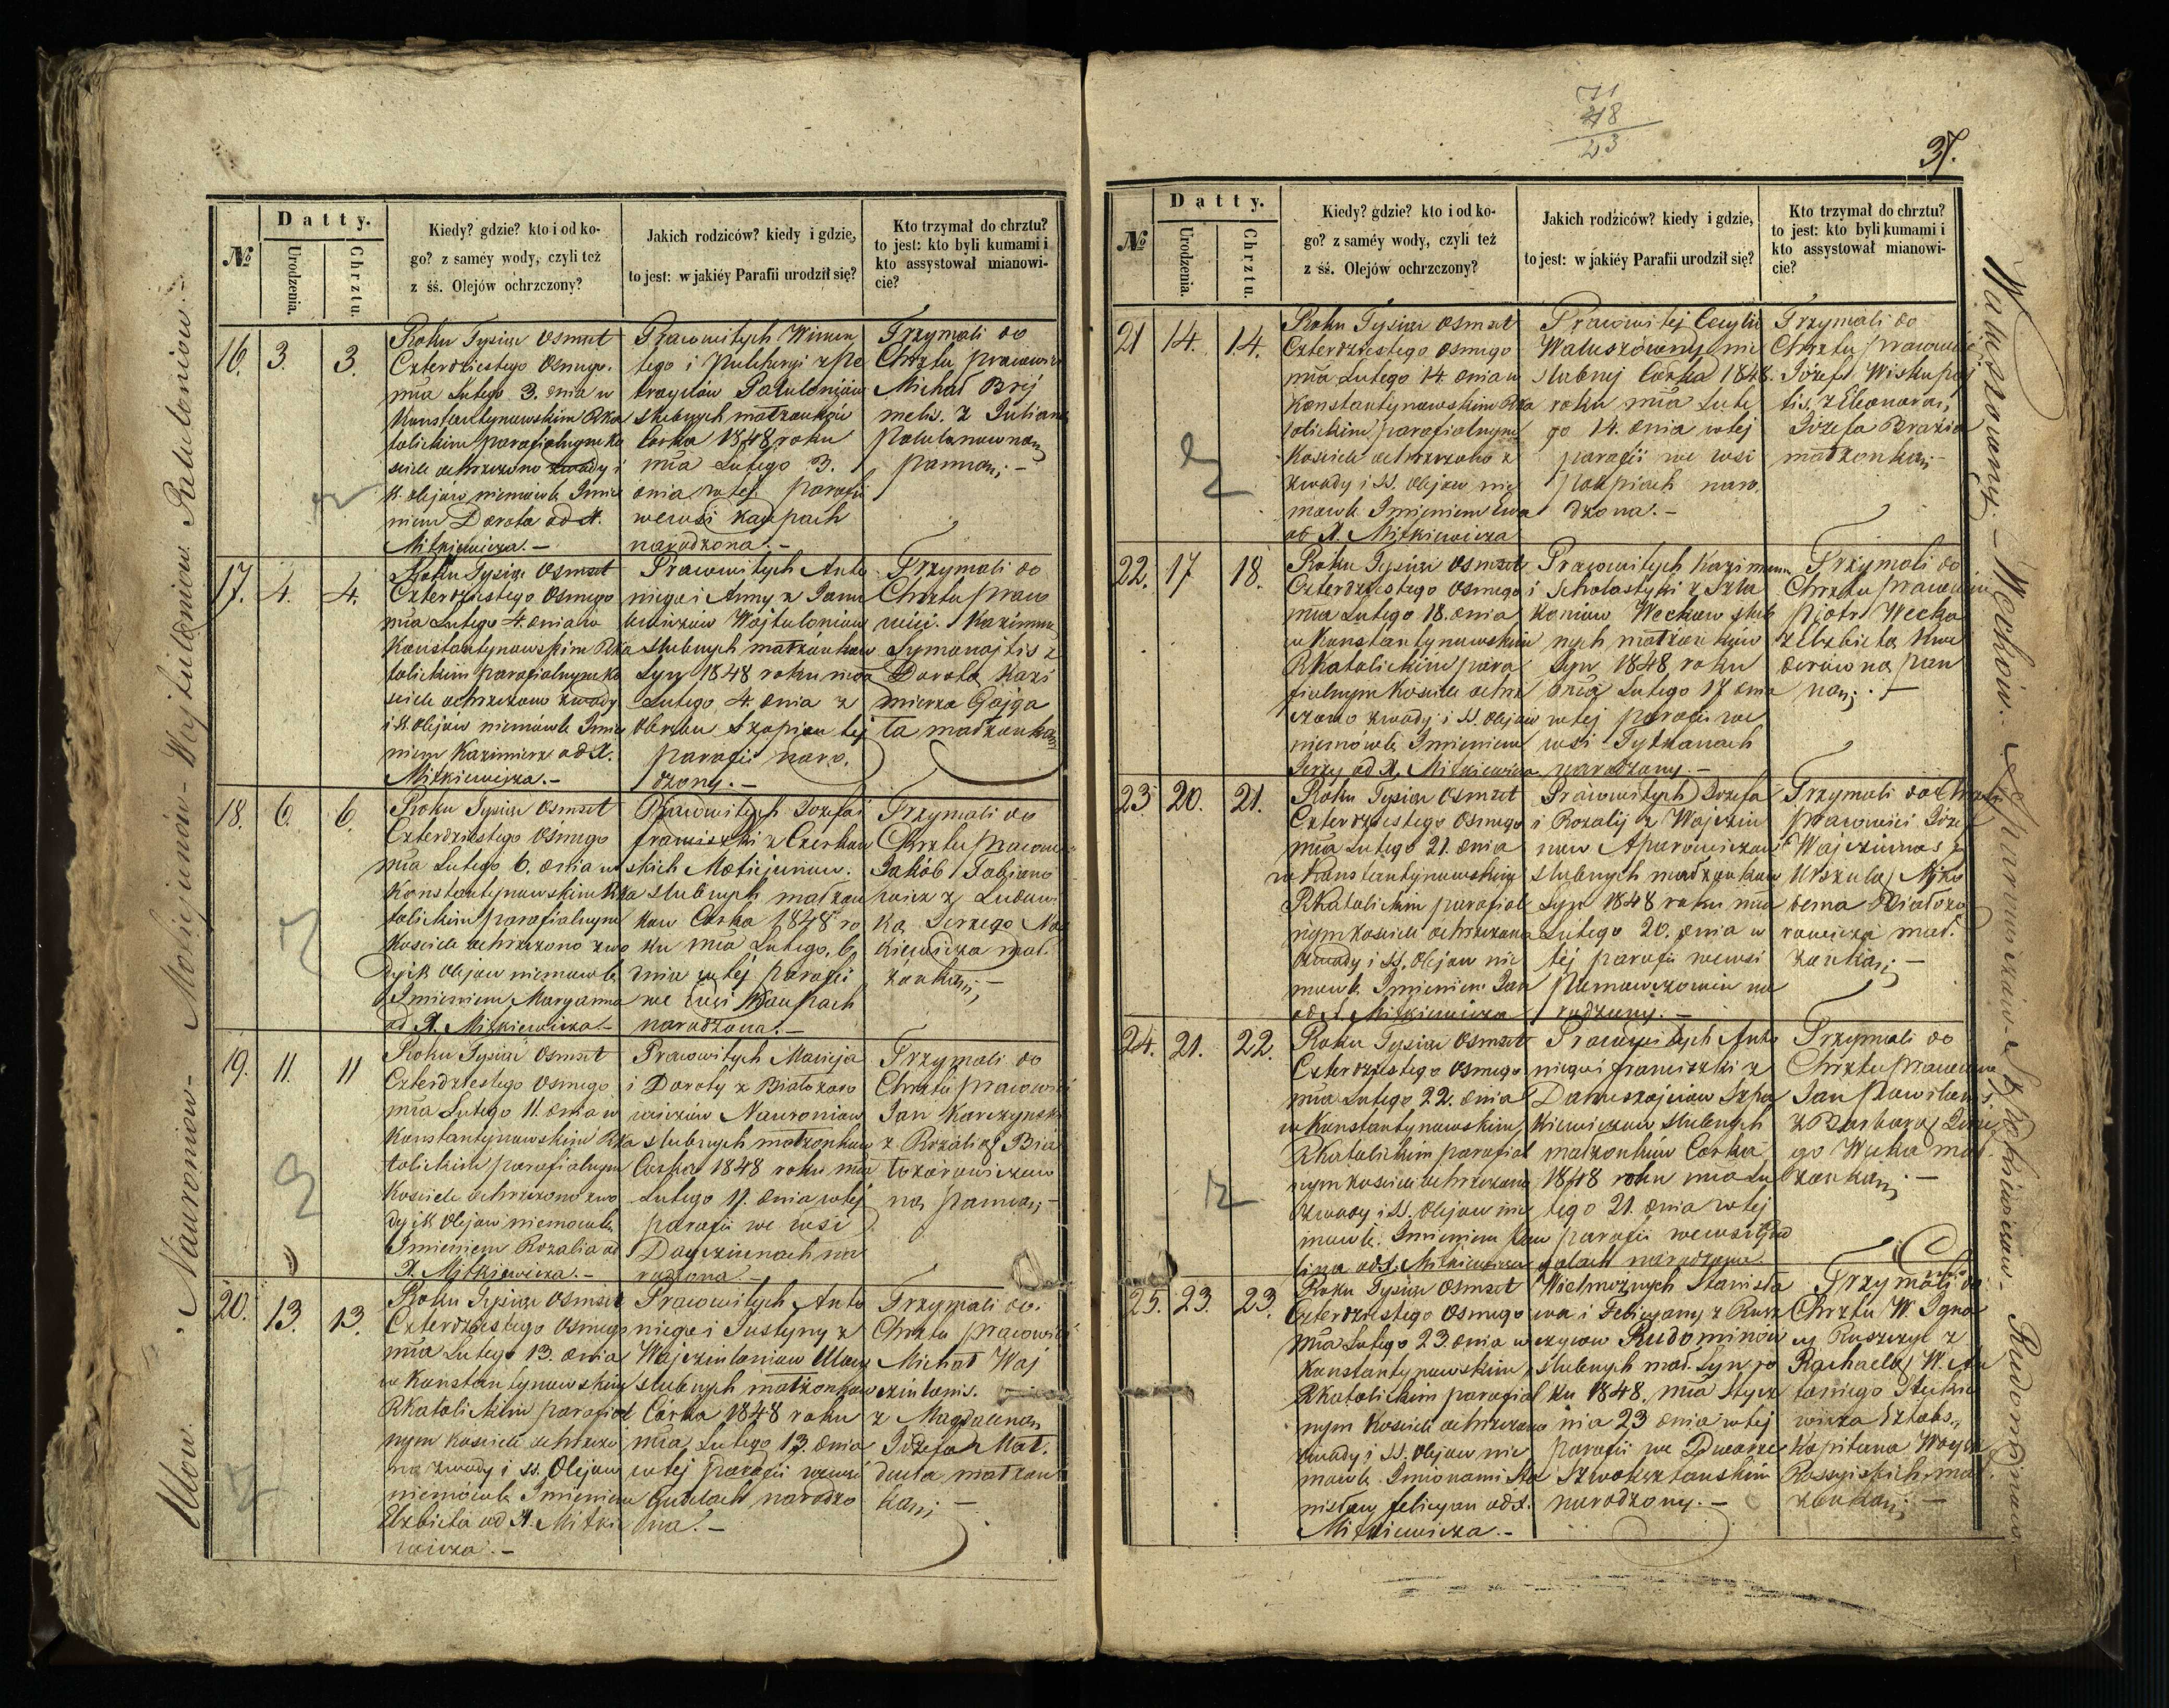 Datty.
№
Urodzenia.
Chrztu.
Kiedy? gdzie? kto i od ko-
go? z saméy wody, czyli też
z śś. Olejów ochrzczony?
Jakich rodziców? kiedy i gdzie,
to jest: w jakiéy Parafii urodził się?
Kto trzymał do chrztu?
to jest: kto byli kumami i
kto assystował mianowi-
cie?
16. 3. 3.
Roku Tysiąc Osmset
Czterdziestego Osmego.
mca Lutego 3. dnia w
Konstantynowskim Rka
tolickim parafialnym ko
sciele ochrzczono zwody i
ss. olejów niemówle Imie
niem Dorota od X.
Mitkiewicza. –
Prawowitych Wincen
tego i Pulcheryi z Pe
trayciów Patulonjów
slubnych małżonków
Corka 1848 roku
mca Lutego 3.
dnia w tej parafii
we wsi Kaupach
narodzona. –
Trzymali do
Chrztu prawowici
Michał Brej
z Julianą
Patulanowną
panną; –
17. 4. 4.
Roku Tysiąc Osmset
Czterdziestego Osmego
mca Lutego 4. dnia w
Konstantynowskim Rka
tolickim parafialnym ko
sciele ochrzczono zwody
i ss. olejów niemówle Imie
niem Kazimierz od X.
Mitkiewicza. –
Prawowitych Anto
niego i Anny z Janu
lewiczow Wojtuloniow
slubnych małżonkow
Syn 1848 roku mca
Lutego 4. dnia z
obrębu Szopien tej
parafii naro.
dzony. –
Trzymali do
Chrztu prawo
wici. Kazimierz
Symonajtis z
Dorotą Kazi
mierza Gajga
ta małżonką
18. 6. 6.
Roku Tysiąc Osmset
Czterdziestego Osmego
mca Lutego 6. dnia w
Konstantynowskim Rka
tolickim parafialnym
Kosciele ochrzczono zwo
dy i ss. Olejow niemowle
Imieniem Maryanna
od X. Mitkiewicza –
Prawowitych Jozefa i
Franciszki z Czerkaw
skich Matiejuniow.
slubnych małżon
kow Corka 1848 ro
ku mca Lutego. 6.
dnia w tej parafii
we wsi Kaupach
narodzona. –
Trzymali do
Chrztu prawowici
Jakób Fabiano
wicz z Ludwi
ką Jerzego
kiewicza mał.
żonką; –
19. 11. 11
Roku Tysiąc Osmset
Czterdziestego Osmego
mca Lutego 11. dnia w
Konstantynowskim Rka
tolickim parafialnym
Kosciele ochrzczono zwo
dy i ss. Olejow niemowle
Imieniem Rozalia od
X. Mitkiewicza. –
Prawowitych Macieja
i Doroty z Białozoro
wiczów Nauroniow
slubnych małżonkow
Corka 1848 roku mca
Lutego 11. dnia w tej
parafii we wsi
Dauczunach na
rodzona –
Trzymali do
Chrztu prawowici
Jan Karczynski
z Rozalią Biá
łozorowiczow
ną panną; –
20. 13. 13.
Roku Tysiąc Osmset
Czterdziestego Osmego
mca Lutego 13. dnia
w Konstantynowskim
Rkatolickim parafial
nym Kosciele ochrzczo
no zwody i ss. Olejow
niemówle Imieniem
Elzbieta od X. Mitkie
wicza. –
Prawowitych Anto
niego i Justyny z
Wajczulaniow Ulow
slubnych małżonkow
Córka 1848 roku
mca Lutego 13. dnia
w tej parafii we wsi
Gudelach narodzo
na. –
Trzymali do
Chrztu prawowici
Michał Waj
czulanis.
z Magdaleną
Jozefa Mat.
dula małżon
ką; –
Ulow. – Nauroniow – Matiejuniow – Wojtuloniow. Patuloniow. –
71
48
23
37.
Datty.
№
Urodzenia.
Chrztu.
Kiedy? gdzie? kto i od ko-
go? z saméy wody, czyli też
z śś. Olejów ochrzczony?
Jakich rodziców? kiedy i gdzie,
to jest: w jakiéy Parafii urodził się?
Kto trzymał do chrztu?
to jest: kto byli kumami i
kto assystował mianowi-
cie?
21 14. 14.
Roku Tysiąc Osmset
Czterdziestego Osmego
mca Lutego 14. dnia w
Konstantynowskim Rka
tolickim parafialnym
Kosciele ochrzczono z
zwody i ss. olejow nie
mowle Imieniem Ewa
od X. Mitkiewicza
Prawowitej Cecylii
Waluszówny nie
slubnej Córka 1848.
roku mca Lute
go 14. dnia w tej
parafii we wsi
Kaupiach naro.
dzona. –
Trzymali do
Chrztu prawowici
Józef Wiskupaj
tis, z Eleonorą,
Józefa
małżonką; –
22. 17 18.
Roku Tysiąc Osmset
Czterdziestego Osmego
mca Lutego 18. dnia
w Konstantynowskim
Rkatolickim para
fialnym Kosciele ochrz
czono zwody i ss. Olejow
niemówle Imieniem
Jerzy od X. Mitkiewicza
Prawowitych Kazimierza
i Scholastyki z Szla
koniow Weckow slub
nych małżonkow
Syn 1848 roku
mca Lutego 17 dnia
w tej parafii we
wsi Tytkanach
narodzony. –
Trzymali do
Chrztu prawowici
Piotr Wecka
z Elzbietą Kwe
derówną pan
ną; –
23. 20. 21.
Roku Tysiąc Osmset
Czterdziestego Osmego
mca Lutego 21. dnia
w Konstantynowskim
Rkatolickim parafial
nym kosciele ochrzczono
zwody i ss. Olejow nie
mowle Imieniem Jan
od X. Mitkiewicza
Prawowitych Jozefa
i Rozalij z Wajcziu
now Aparowiczow
slubnych małżonkow
Syn 1848 roku mca
Lutego 20. dnia w
tej parafii we wsi
na
rodzony. –
Trzymali do Chrztu
prawowici Józef
Wajcziunas z
Urszulą
dema Białozo
rowicza mał.
żonką; –
24. 21. 22.
Roku Tysiąc Osmset
Czterdziestego Osmego
mca Lutego 22. dnia
w Konstantynowskim
Rkatolickim parafial
nym kosciele ochrzczono
zwody i ss. Olejow nie
mowle. Imieniem Pau
lina od X. Mitkiewicza
Prawowitych Anto
niego i Franciszki z
Danuszajciow Szpa
kiewiczow slubnych
małżonków Corka
1848 roku mca Lu
tego 21. dnia w tej
parafii we wsi
narodzona.
Trzymali do
Chrztu prawowici
Jan
z Barbarą
go mał.
żonką; –
25. 23. 23.
Roku Tysiąc Osmset
Czterdziestego Osmego
mca Lutego 23. dnia w
Konstantynowskim
Rkatolickim parafial
nym Kosciele ochrzczono
zwody i ss. Olejow nie
mowle Imionami Sta
nisław Felicyan od X.
Mitkiewicza. –
Wielmożnych Stanisła
wa i Felicyany z Rusz
czycow Rudominow
slubnych mał. Syn ro
ku 1848. mca Stycz
nia 23 dnia w tej
parafii we Dworze
Szwoksztańskim
narodzony. –
Trzymali do
Chrztu W. Igna
cy Ruszczyc z
Rachaelą W. An
toniego
wicza Sztabs.,
Kapitana Woysk
Rossyiskich mał.
żonką; –
Waluszowny. – Weckow. – Aparowiczow – Szpakiewiczow. – Rudominow. –